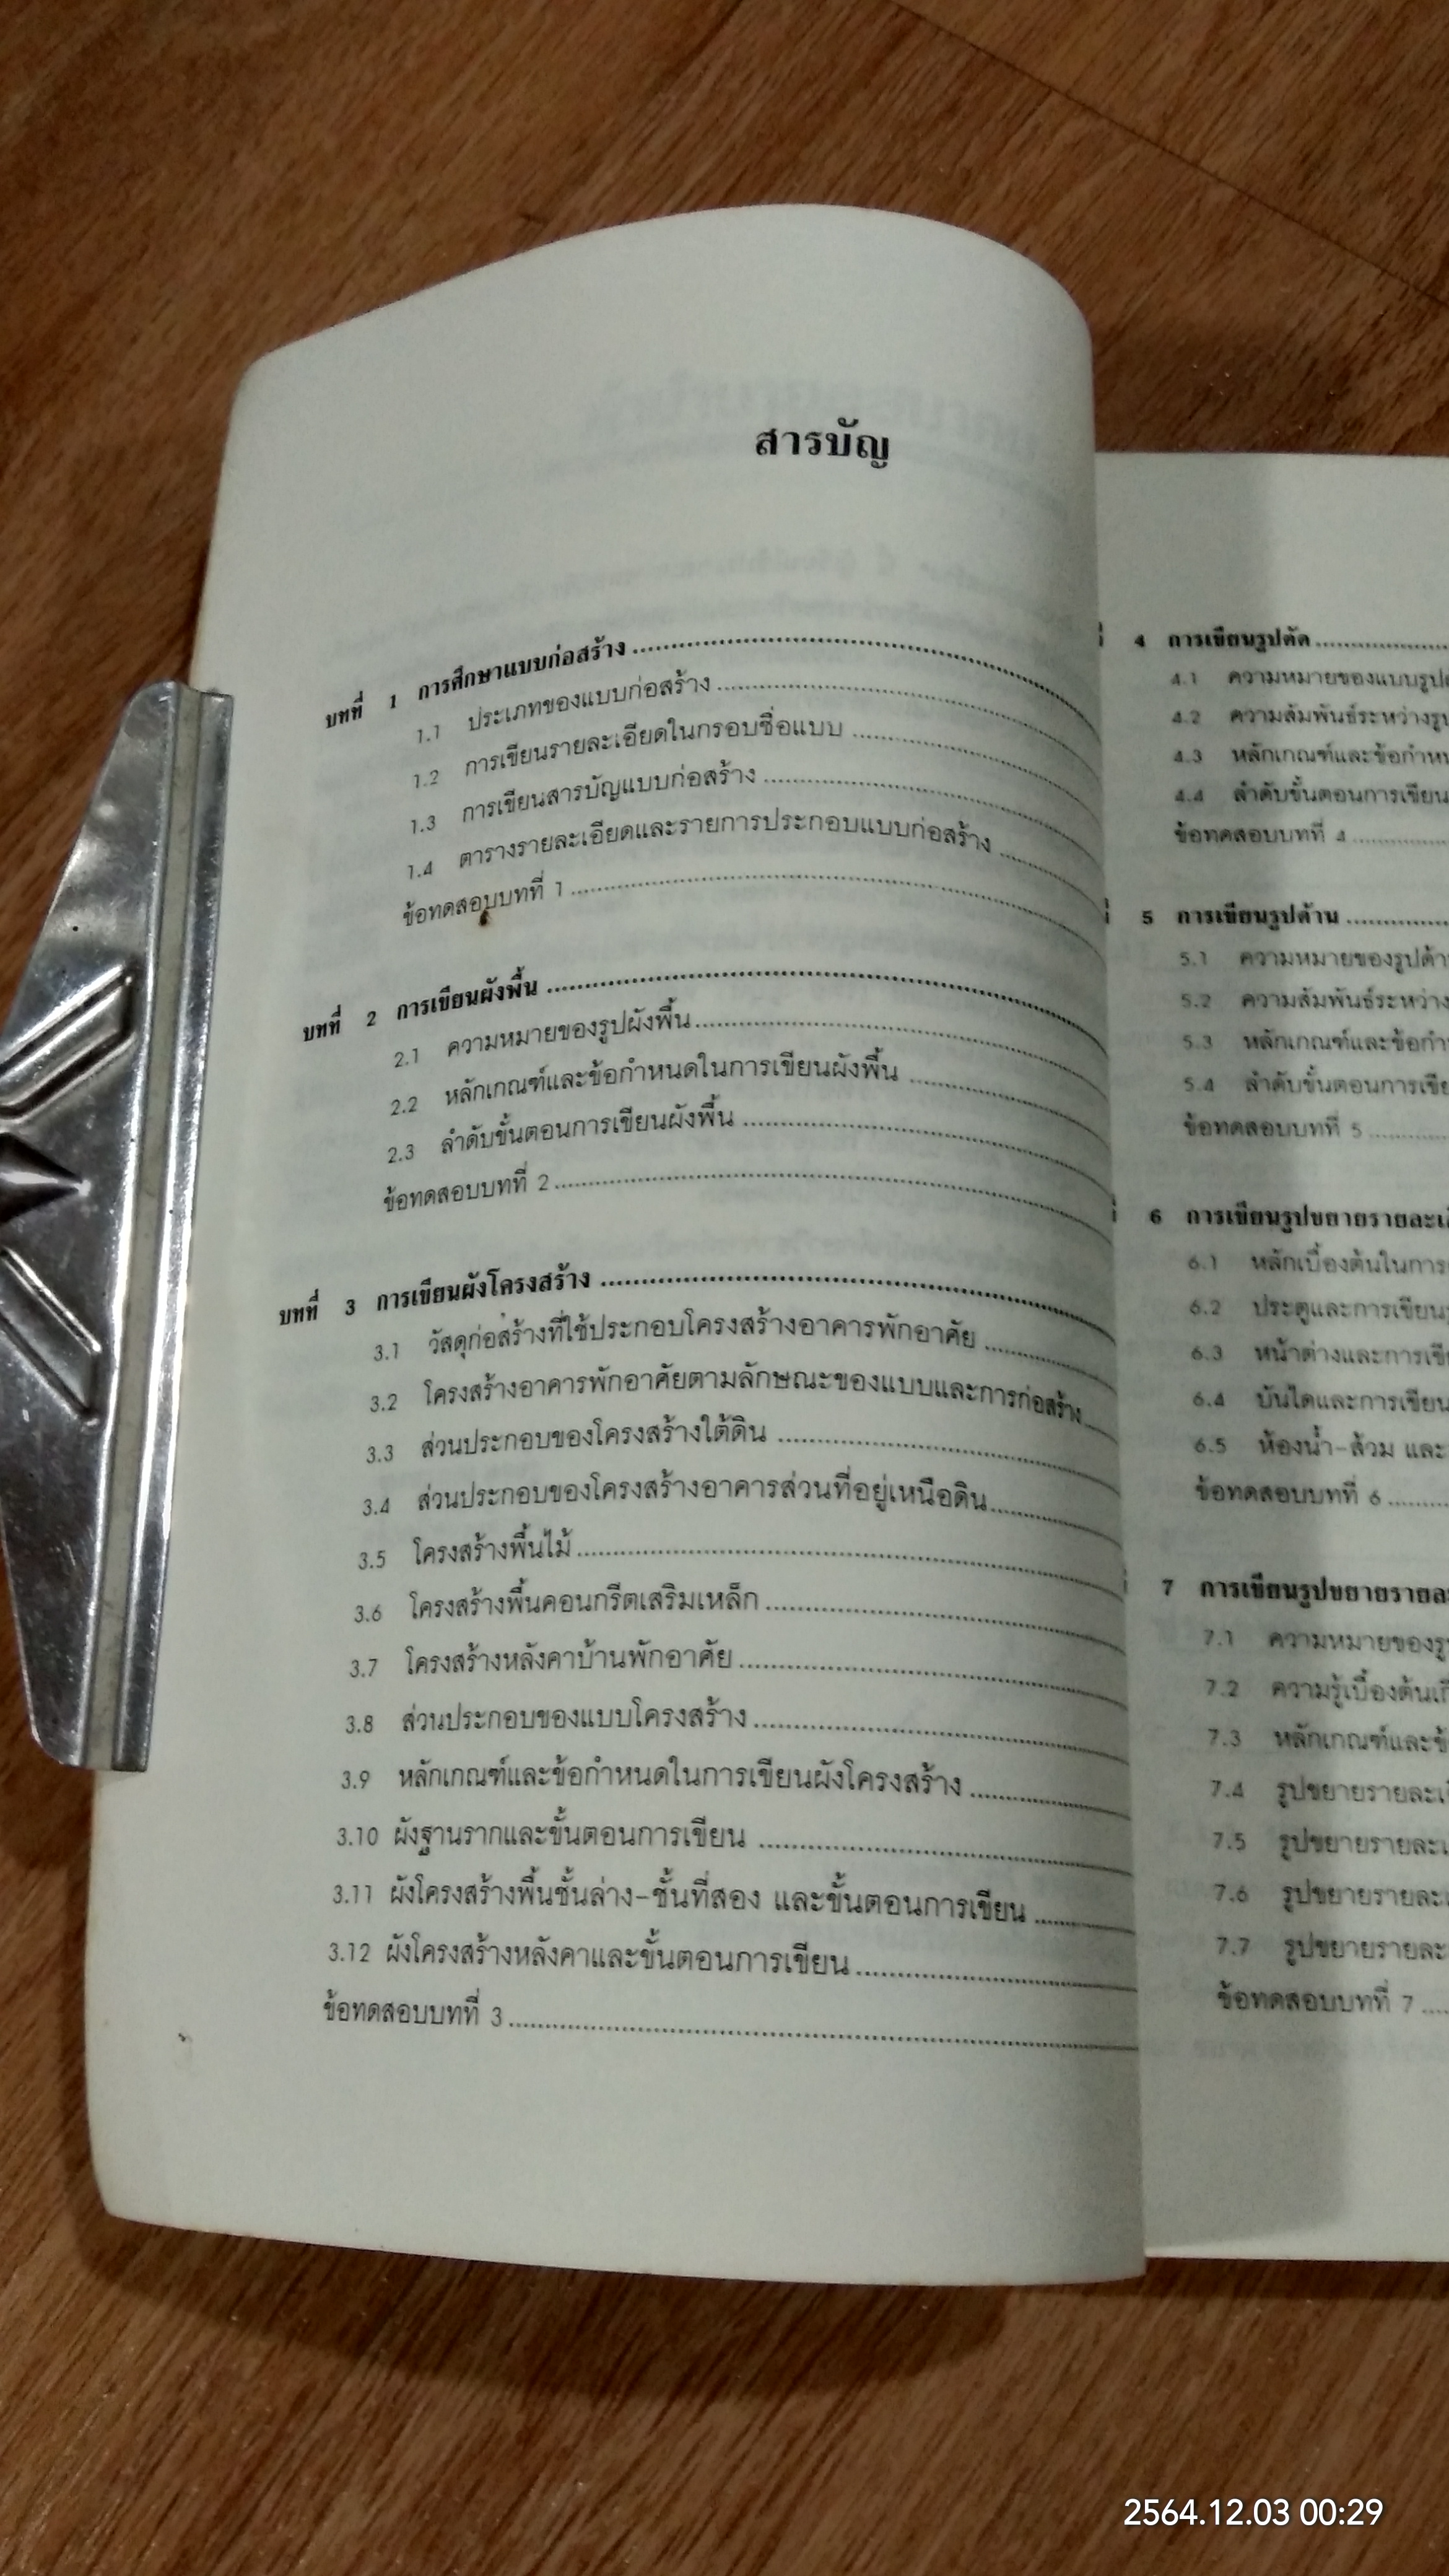 สารบัญ
บทที่ 1 การศึกษาแบบก่อสร้าง
1.1 ประเภทของแบบก่อสร้าง
1.2 การเขียนรายละเอียดในกรอบชื่อแบบ
1.3 การเขียนสารบัญแบบก่อสร้าง
1.4 ตารางรายละเอียดและรายการประกอบแบบก่อสร้าง
ข้อทดสอบบทที่ 1
บทที่ 2 การเขียนผังพื้น
2.1 ความหมายของรูปผังพื้น
2.2 หลักเกณฑ์และข้อกำหนดในการเขียนผังพื้น
2.3 ลำดับขั้นตอนการเขียนผังพื้น
ข้อทดสอบบทที่ 2
บทที่ 3 การเขียนผังโครงสร้าง
3.1 วัสดุก่อสร้างที่ใช้ประกอบโครงสร้างอาคารพักอาศัย
3.2 โครงสร้างอาคารพักอาศัยตามลักษณะของแบบและการก่อสร้าง
3.3 ส่วนประกอบของโครงสร้างใต้ดิน
3.4 ส่วนประกอบของโครงสร้างอาคารส่วนที่อยู่เหนือดิน
3.5 โครงสร้างพื้นไม้
3.6 โครงสร้างพื้นคอนกรีตเสริมเหล็ก
3.7 โครงสร้างหลังคาบ้านพักอาศัย
3.8 ส่วนประกอบของแบบโครงสร้าง
3.9 หลักเกณฑ์และข้อกำหนดในการเขียนผังโครงสร้าง
3.10 ผังฐานรากและขั้นตอนการเขียน
3.11 ผังโครงสร้างพื้นชั้นล่าง-ชั้นที่สอง และขั้นตอนการเขียน
3.12 ผังโครงสร้างหลังคาและขั้นตอนการเขียน
ข้อทดสอบบทที่ 3
4 การเขียนรูปตัด
4.1 ความหมายของแบบรูป
4.2 ความสัมพันธ์ระหว่างรูป
4.3 หลักเกณฑ์และข้อกำห
4.4 ลำดับขั้นตอนการเขียน
ข้อทดสอบบทที่ 4
5 การเขียนรูปด้าน
5.1 ความหมายของรูปด้า
5.2 ความสัมพันธ์ระหว่าง
5.3 หลักเกณฑ์และข้อกำ
5.4 ลำดับขั้นตอนการเขีย
ข้อทดสอบบทที่ 5
6 การเขียนรูปขยายรายละเ
6.1 หลักเบื้องต้นในการ
6.2 ประตูและการเขียน
6.3 หน้าต่างและการเขี
6.4 บันไดและการเขียน
6.5 ห้องน้ำ-ส้วม และ
ข้อทดสอบบทที่ 6
7 การเขียนรูปขยายรายละ
7.1 ความหมายของรู
7.2 ความรู้เบื้องต้นเกี่
7.3 หลักเกณฑ์และข้
7.4 รูปขยายรายละเ
7.5 รูปขยายรายละเ
7.6 รูปขยายรายละเ
7.7 รูปขยายรายละ
ข้อทดสอบบทที่ 7
2564.12.03 00:29